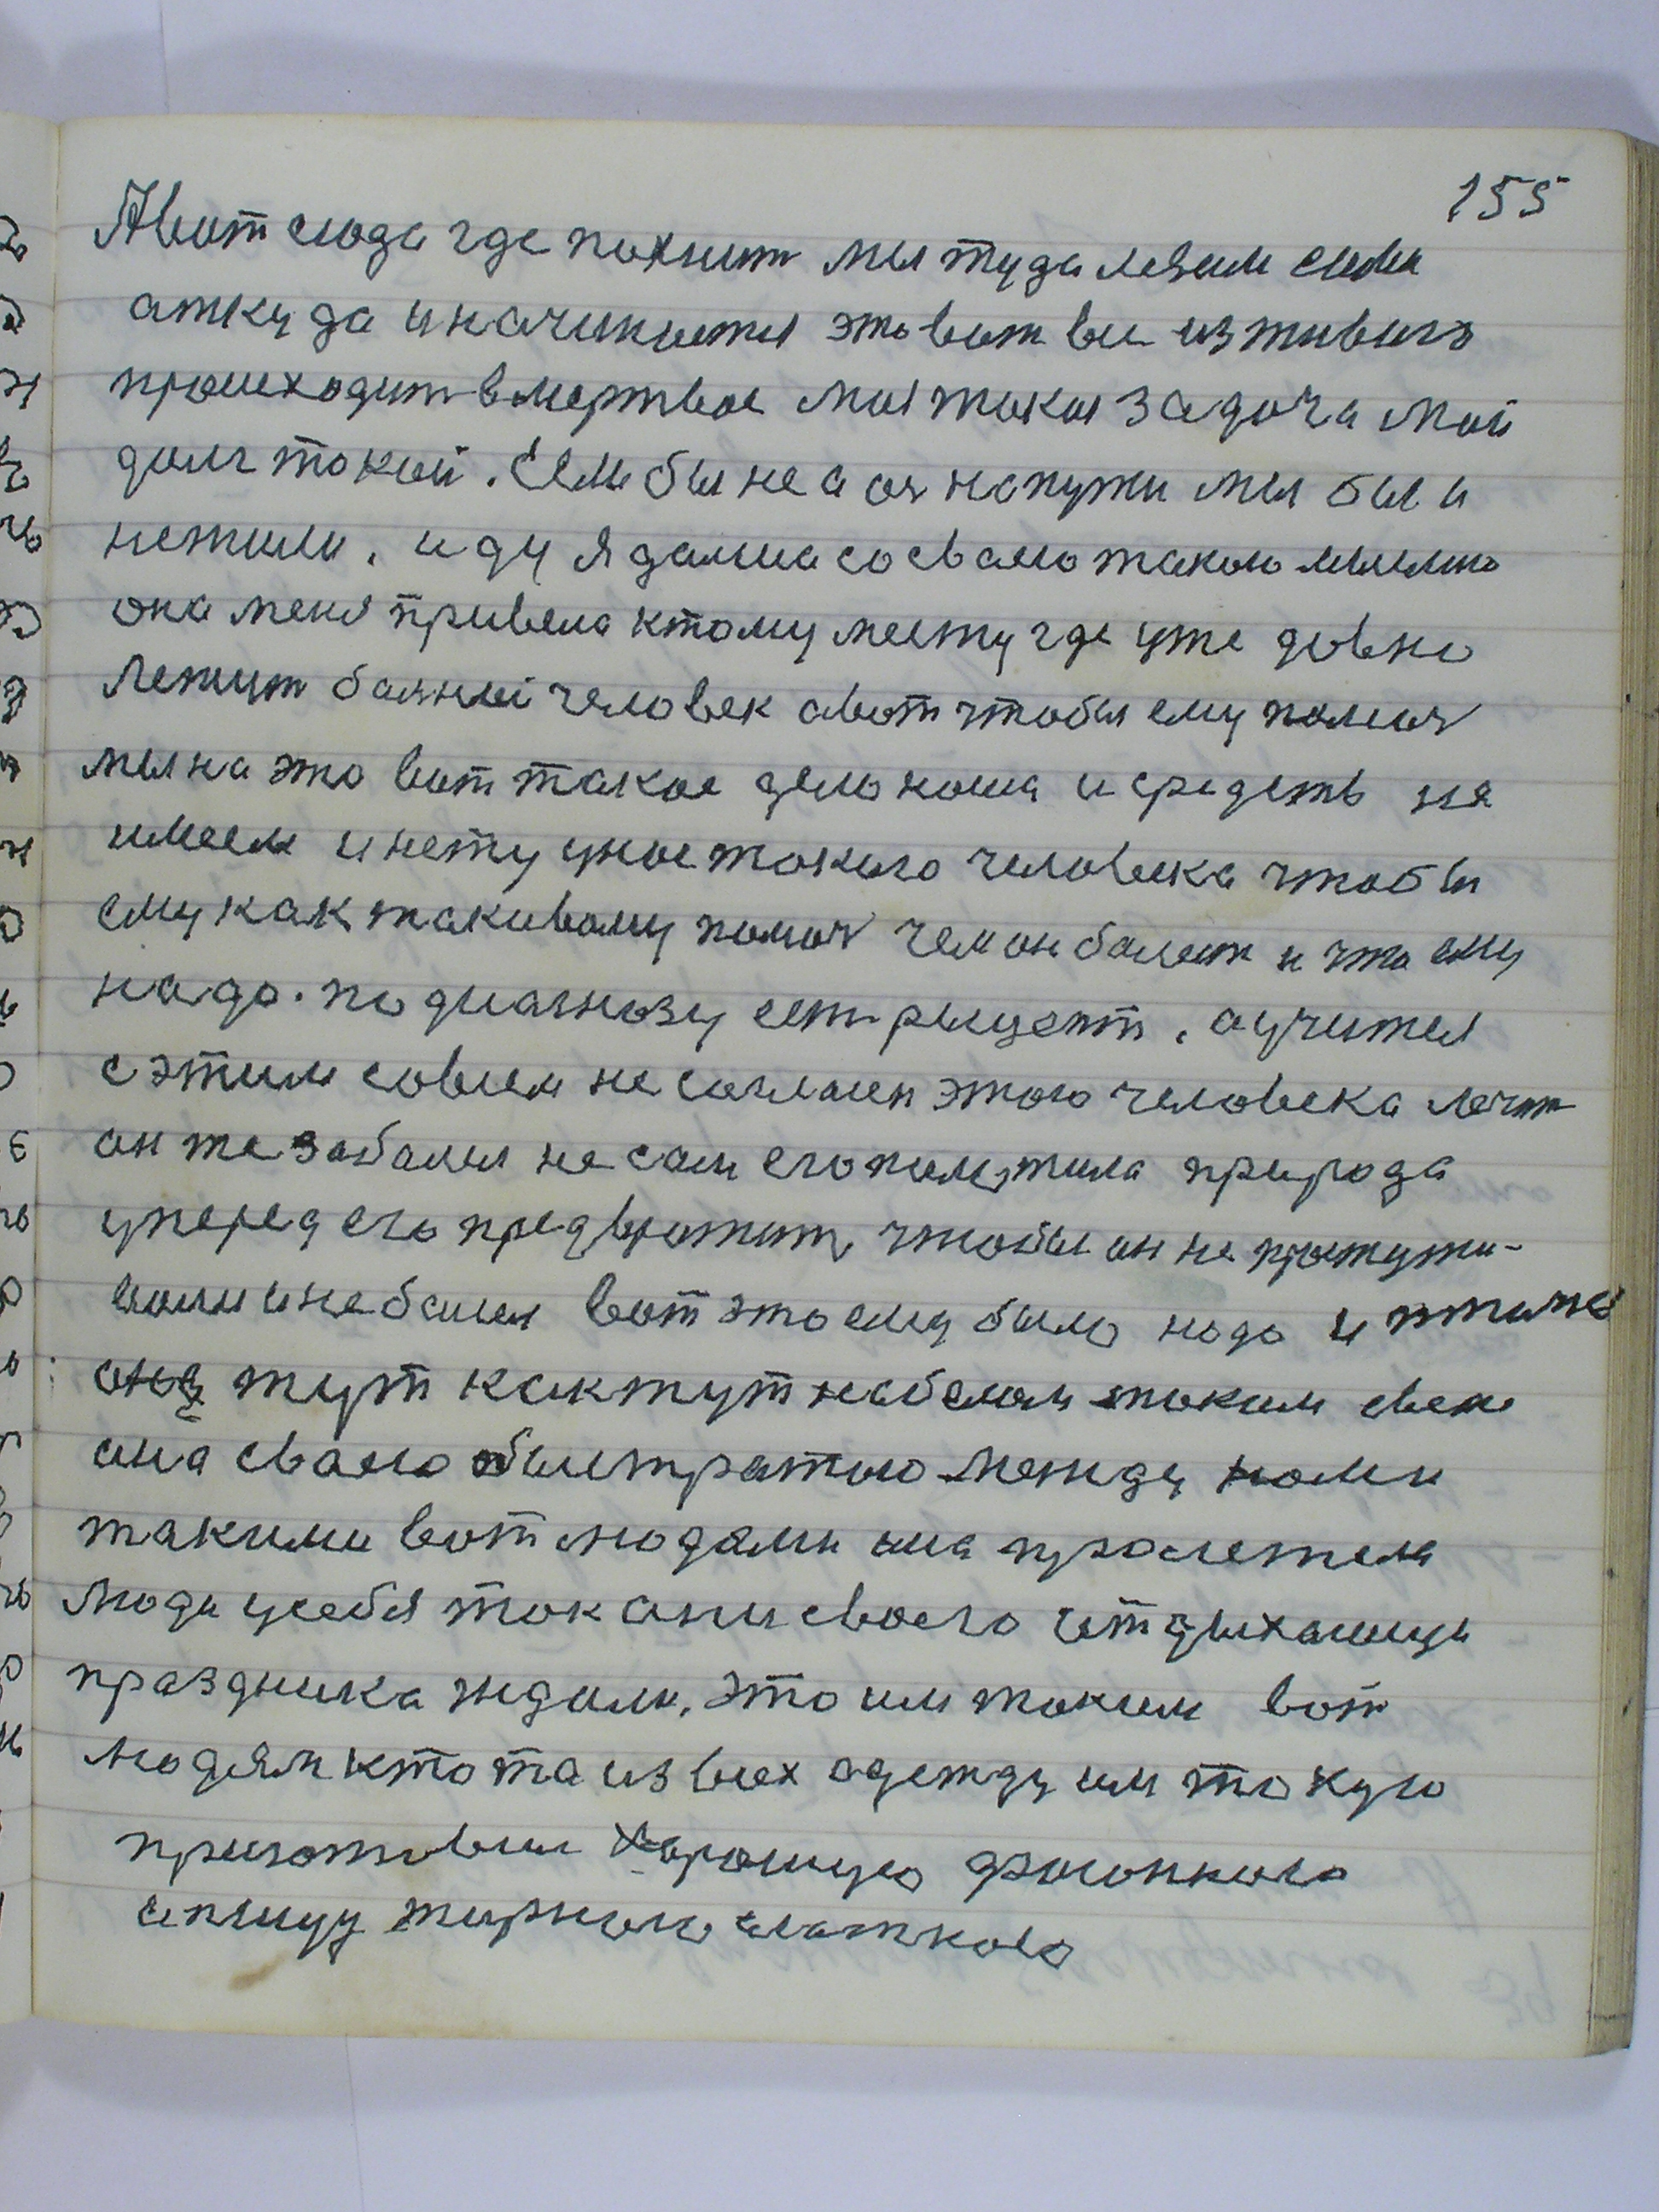 155
Авот сюда где пахнит мы туда лезим сами
аткуда иначинается это вот все изживого
происходит вмертвое моя такая задача мой
долг такой. Если бы не а он напути мы бы и
нежили. иду я дальша сосваею такою мыслию
она меня привела ктому месту где уже давно
Лежит баяный человек авот чтобы ему помоч
мы на это вот такое дело наша исредств не
имеем инету унас такого человека чтобы
ему как таковому помоч чем он балеет и что ему
надо. по диагнозу ест рецепт. аучител
с этим совсем не согласен этого человека лечит
он же забалел не сам его пометила природа
уперед его предвратит, чтобы он не простужи-
вали инебалел вот это ему было надо и птичка
она тут как тут набелом таком свете
она сваею быстратою между нами
такими вот людами она пролетела
Люди усебя так они своего отдыхающи
праздника ждали. это им таким вот
людям кто та извсех адежду им такую
приготовил харошую фасонкого
ипищу жирного слаткого